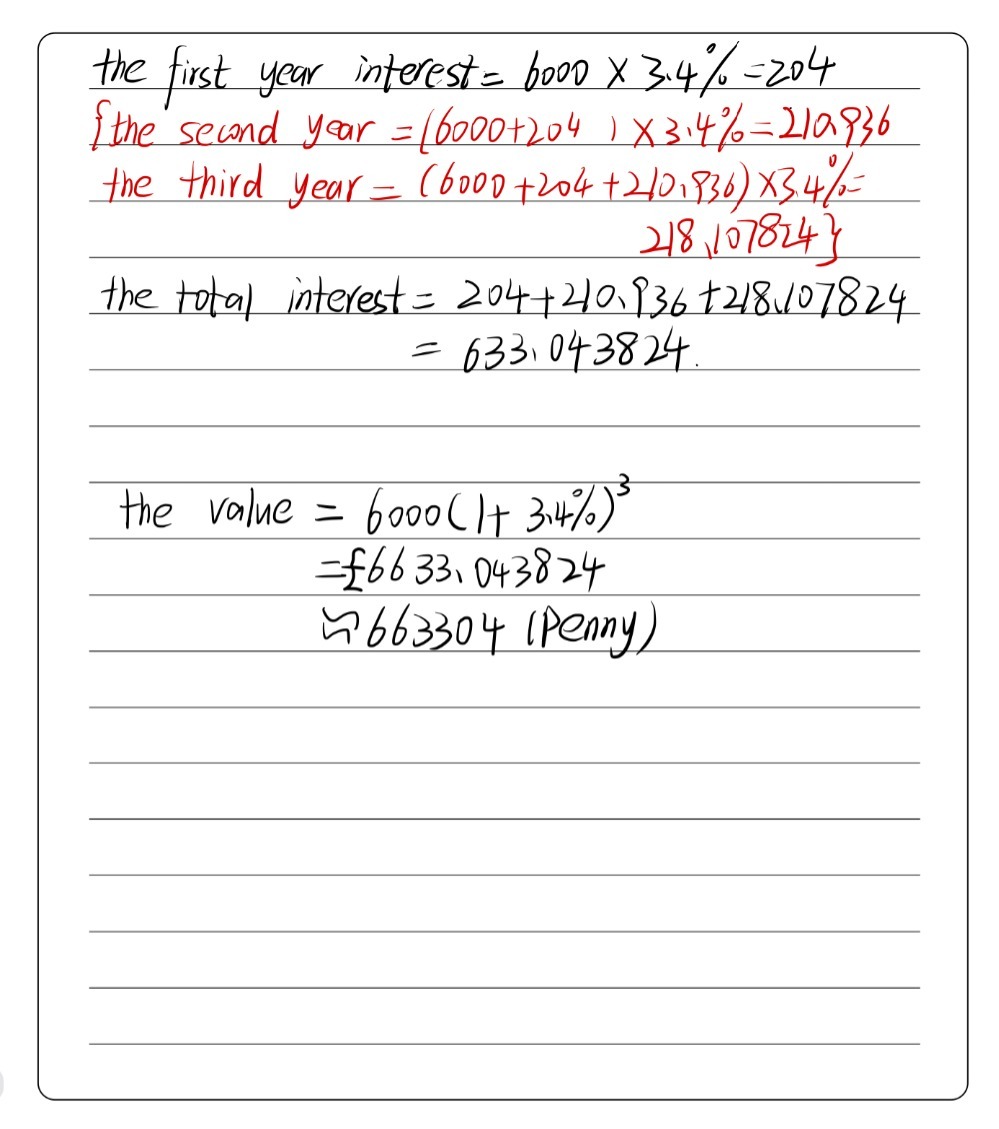 the first year interest = 6000 × 3.4% = 204
{the second year = (6000+204 ) × 3.4% = 210.936
the third year = (6000+204+210.936) ×3.4% =
218.107824}
the total interest = 204+210.936+218.107824
= 633.043824.
the value = 6000(1+ 3.4%)³
=£6633.043824
≈663304 (Penny)